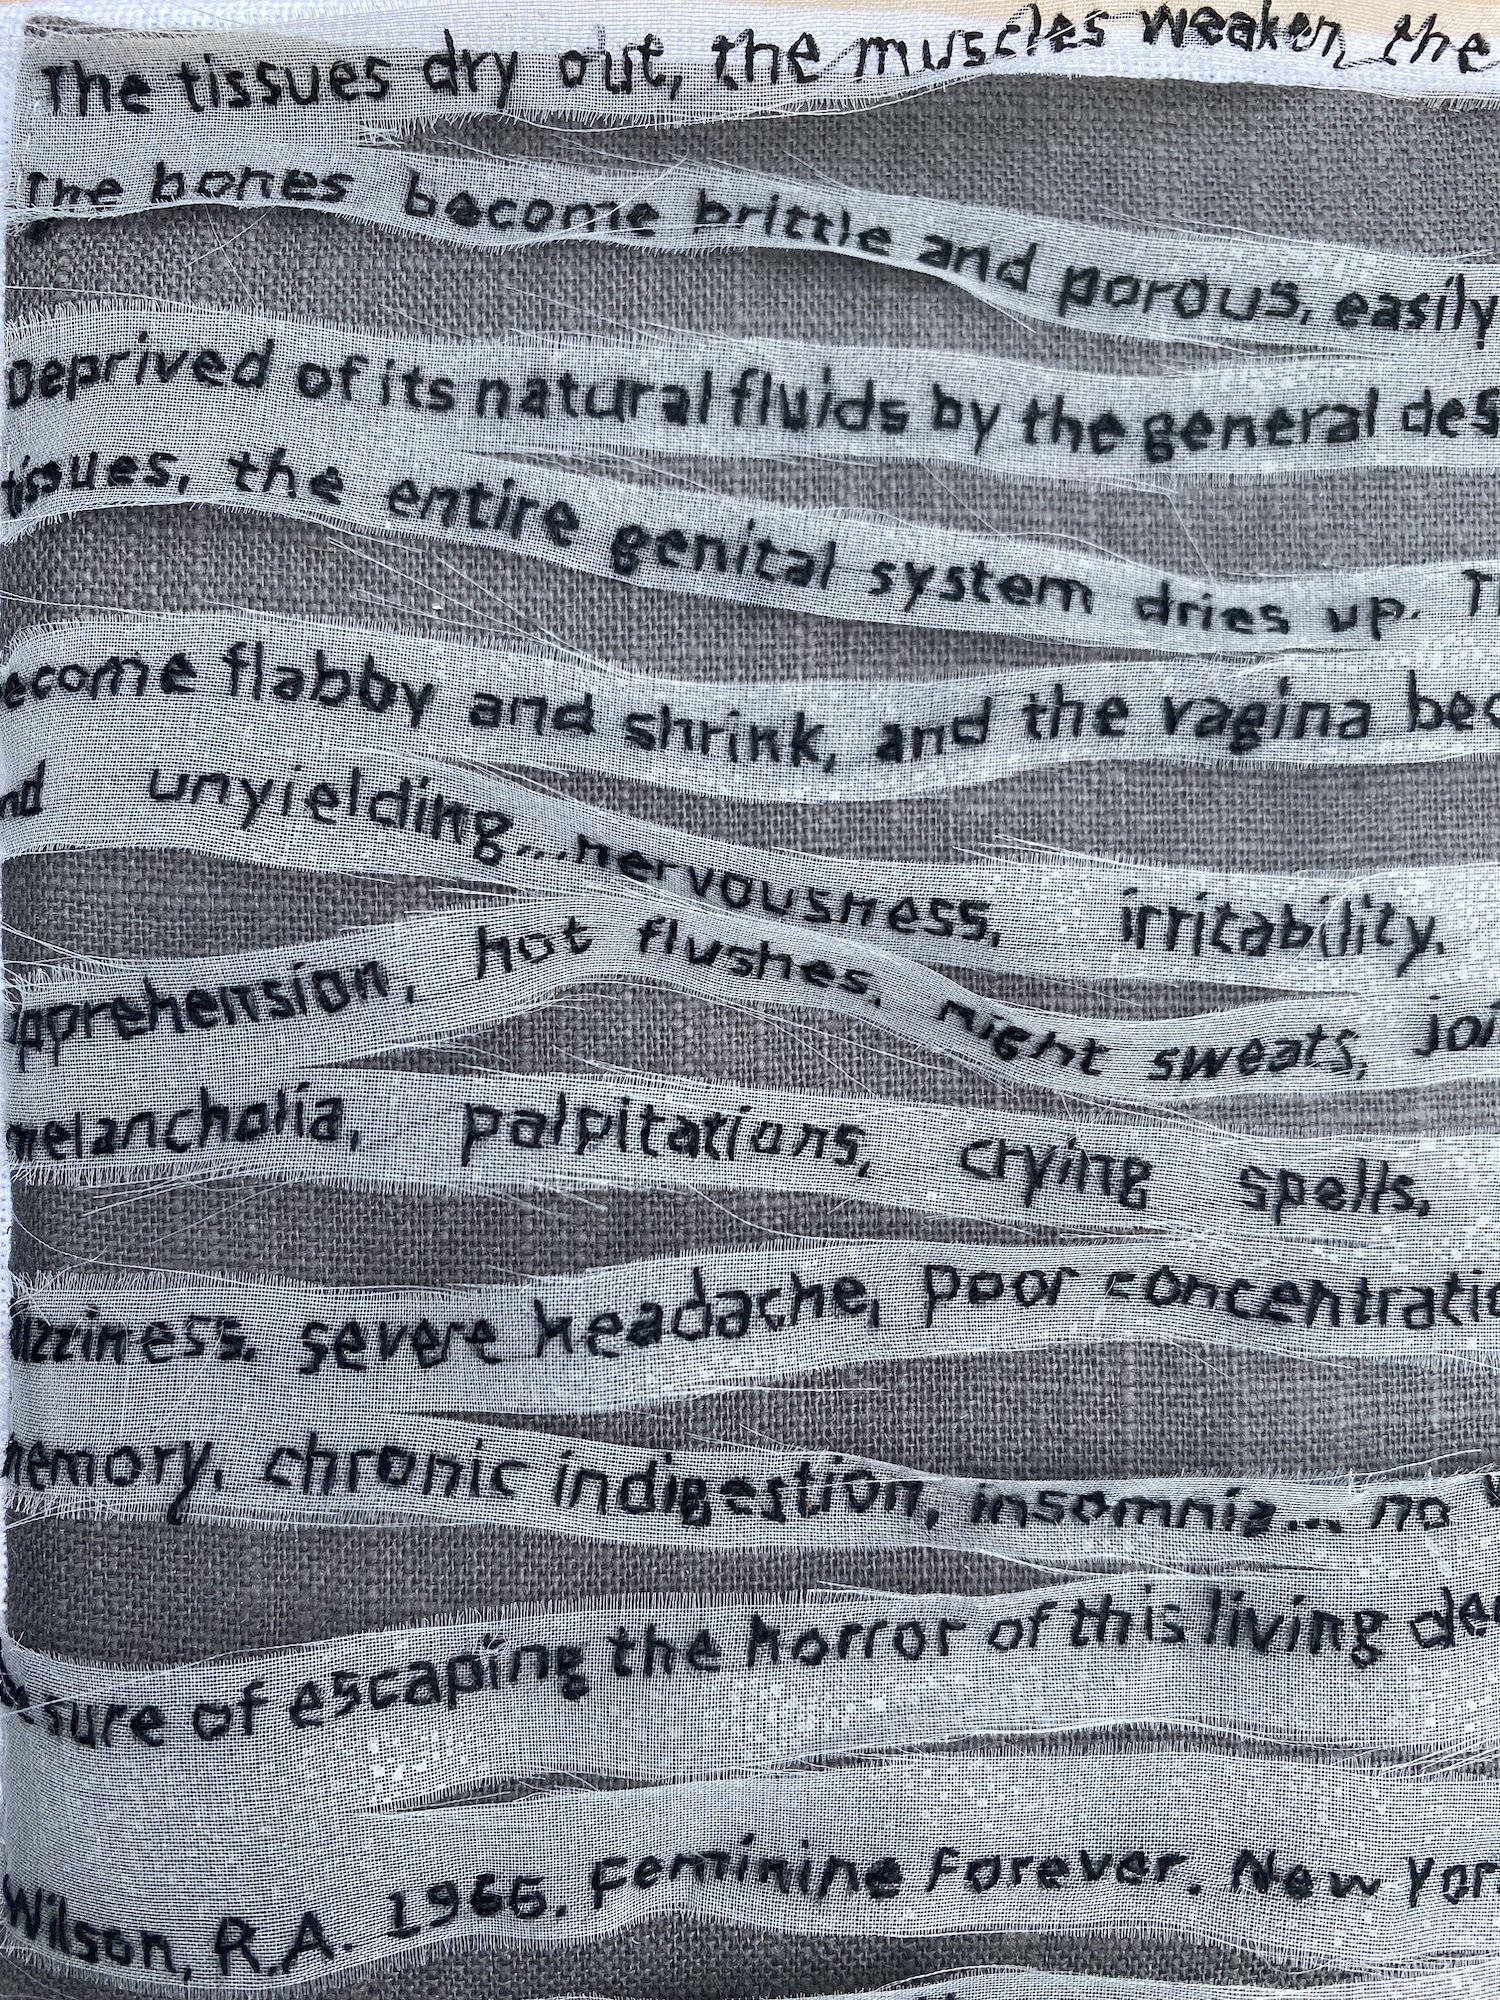 The tissues dry out, the muscles weaken, the
The bones become brittle and porous, easily
Deprived of its natural fluids by the general des
tissues, the entire genital system dries up. T
ecome flabby and shrink, and the vagina bec
nd unyielding...nervousness, irritability,
apprehension, hot flushes, night sweats, joi
melancholia, palpitations, crying spells,
izziness, severe headache, poor concentratio
memory, chronic indigestion, insomnia... no
sure of escaping the horror of this living de
Wilson, R.A. 1966. Feminine Forever. New Yor